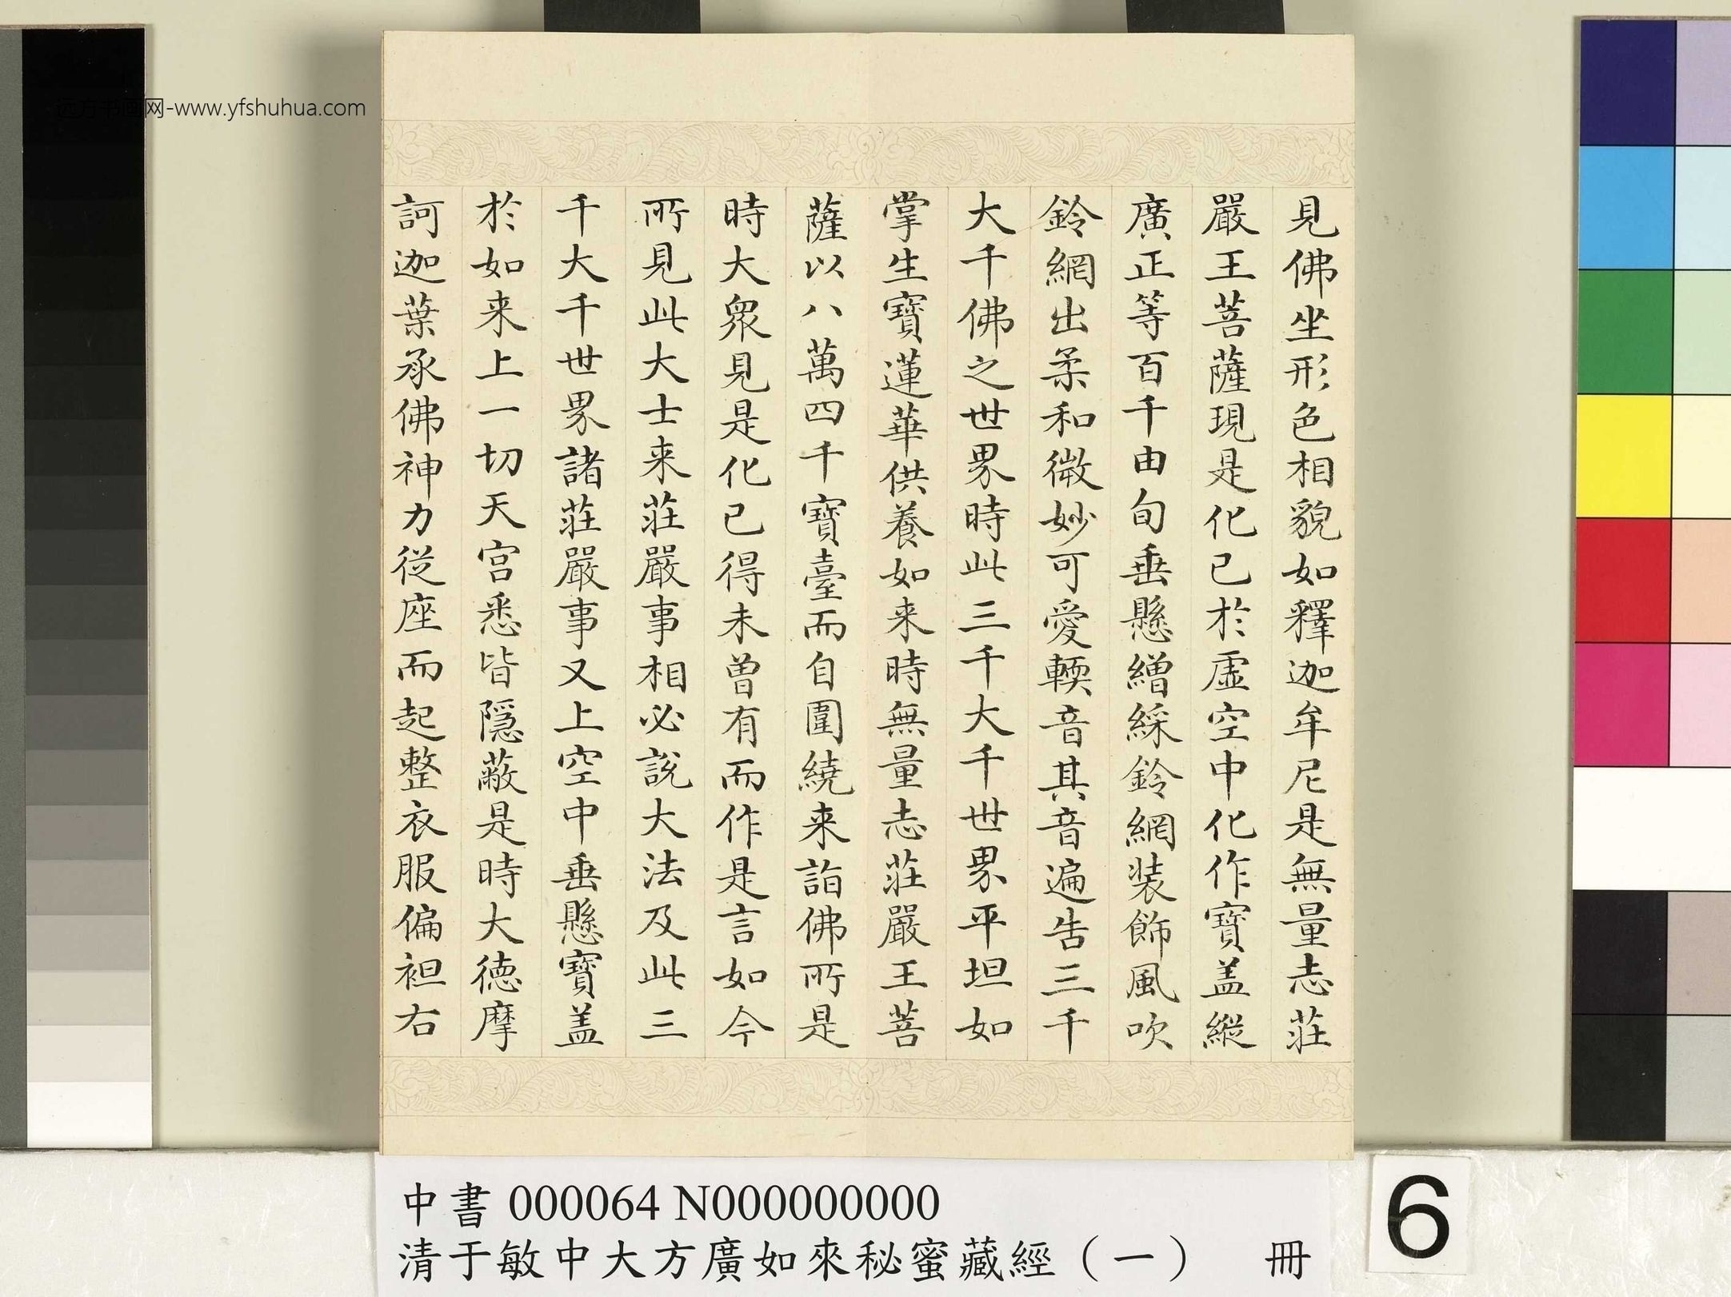 网-www.yfshuhua.com
見佛坐形色相貌如釋迦牟尼是無量志莊
嚴王菩薩現是化已於虛空中化作寶盖縱
廣正等百千由旬垂懸繒綵鈴網裝飾風吹
鈴網出柔和微妙可愛輭音其音遍告三千
大千佛之世界時此三千大千世界平坦如
掌生寶蓮華供養如来時無量志莊嚴王菩
薩以八萬四千寶臺而自圍繞来詣佛所是
時大眾見是化已得未曾有而作是言如今
所見此大士来莊嚴事相必說大法及此三
千大千世界諸莊嚴事又上空中垂懸寶盖
於如来上一切天宮悉皆隱蔽是時大德摩
訶迦葉承佛神力從座而起整衣服偏袒右
中書 000064 N000000000
清于敏中大方廣如來秘蜜藏經（一） 冊
6